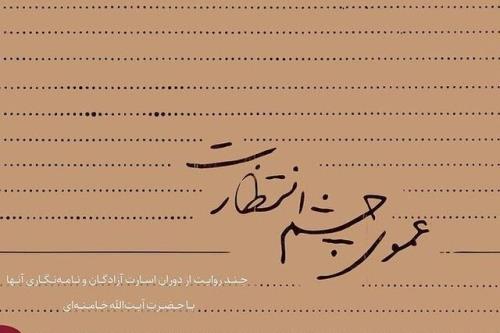 عموی چشم انتظارت
چند روایت از دوران اسارت آزادگان و نامه‌نگاری آنها
با حضرت آیت‌الله خامنه‌ای